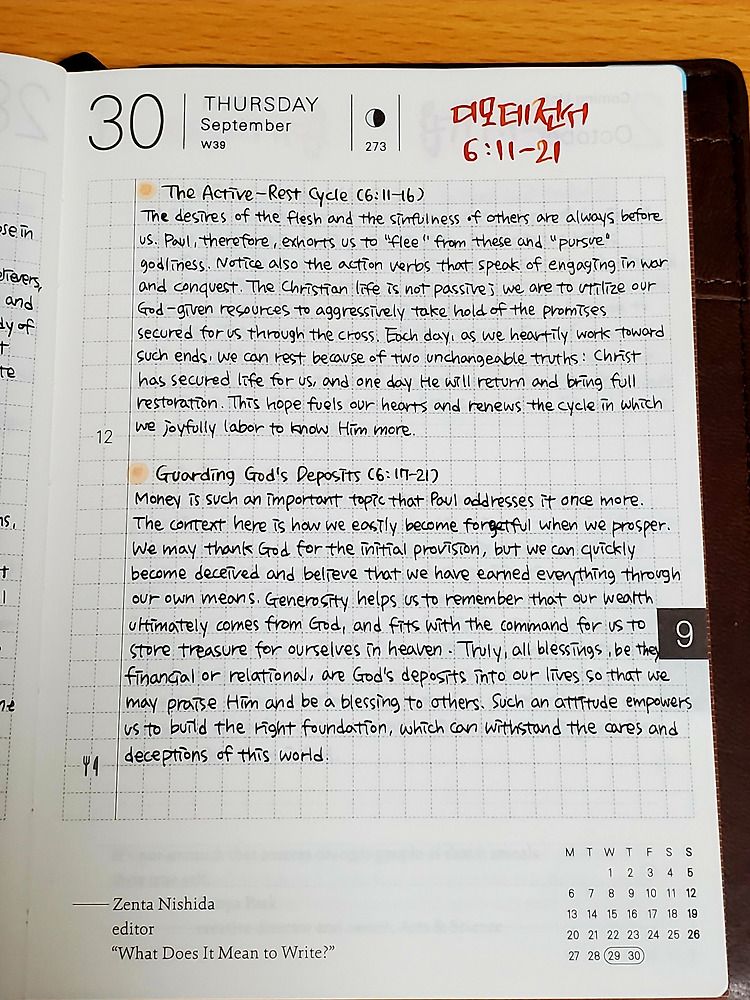 30
THURSDAY
September
W39
273
디모데전서
6:11-21
The Active-Rest Cycle (6:11-16)
The desires of the flesh and the sinfulness of others are always before
us. Paul, therefore, exhorts us to "flee" from these and "pursue"
godliness. Notice also the action verbs that speak of engaging in war
and conquest. The Christian life is not passive; we are to utilize our
God-given resources to aggressively take hold of the promises
secured for us through the cross. Each day, as we heartily work toward
such ends, we can rest because of two unchangeable truths: Christ
has secured life for us, and one day He will return and bring full
restoration. This hope fuels our hearts and renews the cycle in which
we joyfully labor to know Him more.
12
Guarding God's Deposits (6:17-21)
Money is such an important topic that Paul addresses it once more.
The context here is how we easily become forgetful when we prosper.
We may thank God for the initial provision, but we can quickly
become deceived and believe that we have earned everything through
our own means. Generosity helps us to remember that our wealth
ultimately comes from God, and fits with the command for us to
store treasure for ourselves in heaven. Truly, all blessings, be they
financial or relational, are God's deposits into our lives so that we
may praise Him and be a blessing to others. Such an attitude empowers
us to build the right foundation, which can withstand the cares and
deceptions of this world.
9
Zenta Nishida
editor
"What Does It Mean to Write?"
M T W T F S S
1 2 3 4 5
6 7 8 9 10 11 12
13 14 15 16 17 18 19
20 21 22 23 24 25 26
27 28 29 30
se in
lievers,
and
dy of
te